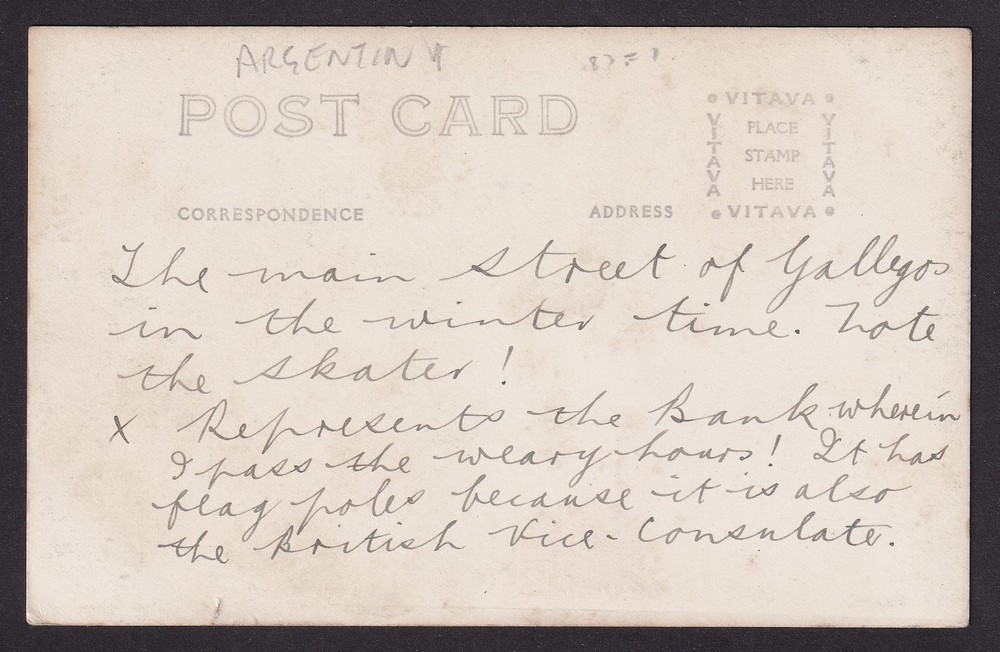 ARGENTINA
POST CARD
VITAVA
VITAVA
VITAVA
PLACE
STAMP
HERE
VITAVA
CORRESPONDENCE
ADDRESS
The main street of Gallegos
in the winter time. Note
the skater!
X Represents the Bank wherein
I pass the weary hours! It has
flag poles because it is also
the British Vice-Consulate.